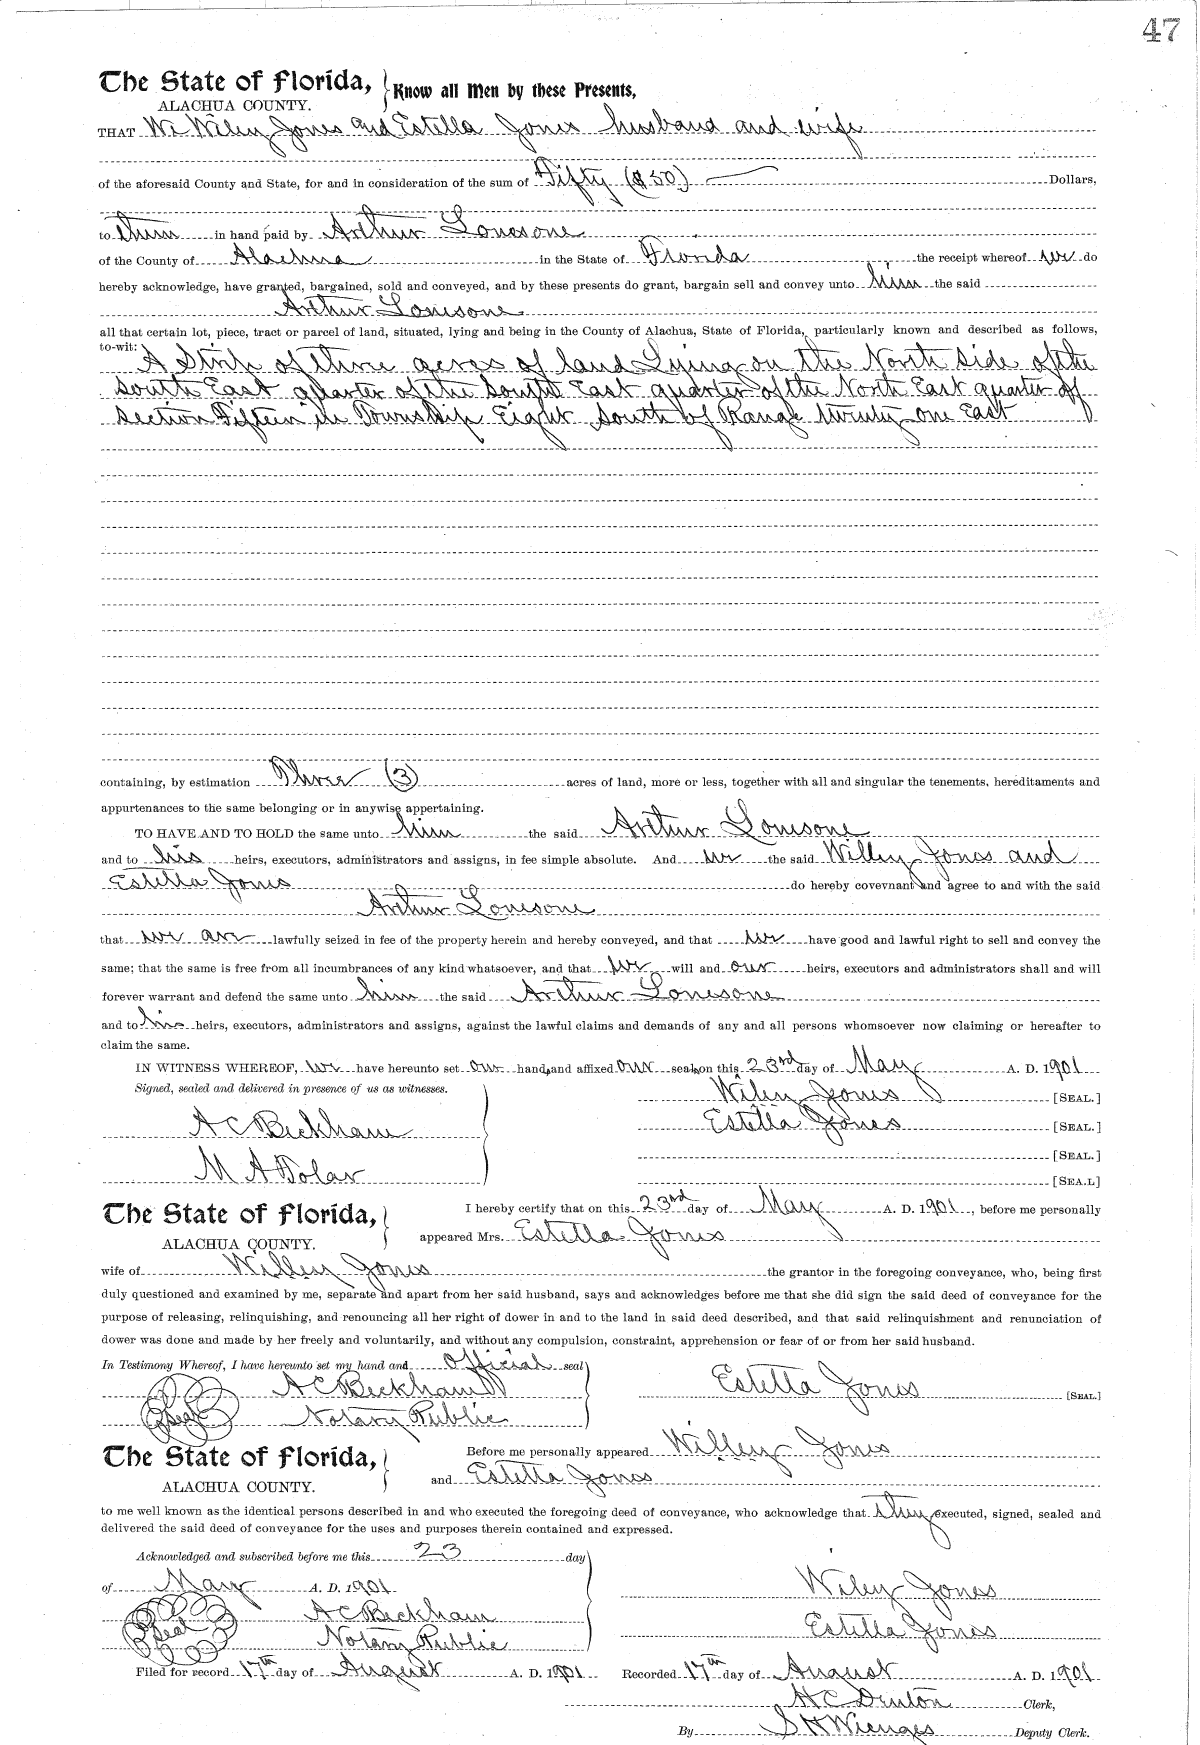 47
The State of Florida,
ALACHUA COUNTY.
Know all Men by these Presents,
THAT We Wiley Jones and Estella Jones husband and wife
of the aforesaid County and State, for and in consideration of the sum of Fifty ($50) Dollars,
to them in hand paid by Arthur Lonesone
of the County of Alachua in the State of Florida the receipt whereof we do
hereby acknowledge, have granted, bargained, sold and conveyed, and by these presents do grant, bargain sell and convey unto him the said
Arthur Lonesone
all that certain lot, piece, tract or parcel of land, situated, lying and being in the County of Alachua, State of Florida, particularly known and described as follows,
to-wit: A Strip of three acres of land Lying on the North side of the
South East quarter of the South East quarter of the North East quarter of
Section Fifteen in Township Eight South of Range twenty one East
containing, by estimation Three (3) acres of land, more or less, together with all and singular the tenements, hereditaments and
appurtenances to the same belonging or in anywise appertaining.
TO HAVE AND TO HOLD the same unto him the said Arthur Lonesone
and to his heirs, executors, administrators and assigns, in fee simple absolute. And we the said Willey Jones and
Estella Jones do hereby covevnant and agree to and with the said
Arthur Lonesone
that we are lawfully seized in fee of the property herein and hereby conveyed, and that we have good and lawful right to sell and convey the
same; that the same is free from all incumbrances of any kind whatsoever, and that we will and our heirs, executors and administrators shall and will
forever warrant and defend the same unto him the said Arthur Lonesone
and to his heirs, executors, administrators and assigns, against the lawful claims and demands of any and all persons whomsoever now claiming or hereafter to
claim the same.
IN WITNESS WHEREOF, we have hereunto set our hands and affixed our seals on this 23rd day of May A. D. 1901
Signed, sealed and delivered in presence of us as witnesses.
Wiley Jones [SEAL.]
A C Beckham
Estella Jones [SEAL.]
[SEAL.]
M A Dolar
[SEA.L]
The State of Florida,
ALACHUA COUNTY.
I hereby certify that on this 23rd day of May A. D. 1901, before me personally
appeared Mrs. Estella Jones
wife of Willey Jones the grantor in the foregoing conveyance, who, being first
duly questioned and examined by me, separate and apart from her said husband, says and acknowledges before me that she did sign the said deed of conveyance for the
purpose of releasing, relinquishing, and renouncing all her right of dower in and to the land in said deed described, and that said relinquishment and renunciation of
dower was done and made by her freely and voluntarily, and without any compulsion, constraint, apprehension or fear of or from her said husband.
In Testimony Whereof, I have hereunto set my hand and official seal
A C Beckham
Estella Jones [SEAL.]
Seal Notary Public
The State of Florida,
ALACHUA COUNTY.
Before me personally appeared Willey Jones
and Estella Jones
to me well known as the identical persons described in and who executed the foregoing deed of conveyance, who acknowledge that they executed, signed, sealed and
delivered the said deed of conveyance for the uses and purposes therein contained and expressed.
Acknowledged and subscribed before me this 23 day
of May A. D. 1901
Wiley Jones
Seal A C Beckham
Notary Public
Estella Jones
Filed for record 17th day of August A. D. 1901 Recorded 17th day of August A. D. 1901
H C Denton Clerk,
By S H Wienges Deputy Clerk.